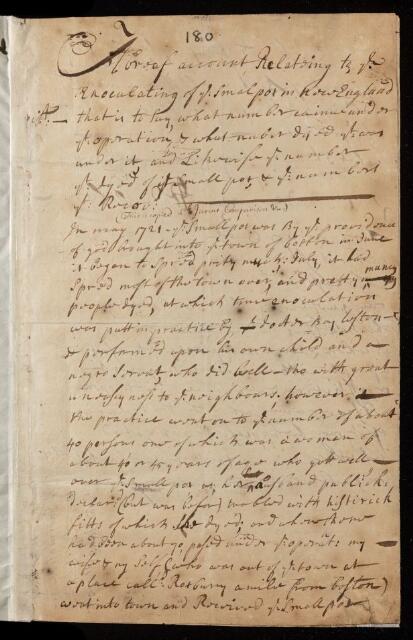 180
A breef account Relateing to ye
Enoculating of ye Smal pox in New England
that is to say, what number came under
ye operation & what nuber dyed yt was
under it and Likewise ye number
yt dyed of ye Small pox & ye numbers
yt Recov:
In may 1721 ye Small pox was By ye providence
of god brought into ye town of boston in June
it began to Spred prity much: July, it had
Spred most of the town over, and pretty many
people dyed, at which time enoculation
was putt in practice By doctor Boylston
& performed upon his own child and a
negro Servat, who did well tho with great
uneasyness to ye neighbours, however,
the practice went on to ye number of about
40 persons one of which was a women of
about 40 or 45 years of age who gott well
over ye Small pox as her and publickly
declard (but was before trobled with histirick
fitts of which She dyed, and when there
had been about 70 pased under ye operatn my
wife & my Self (who was out of ye town at
a place calld Roxburry a mile from boston)
went into town and Received ye Small pox